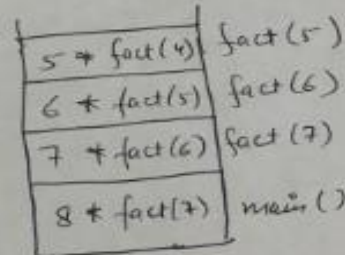 5 * fact(4) fact(5)
6 * fact(5) fact(6)
7 * fact(6) fact(7)
8 * fact(7) main()